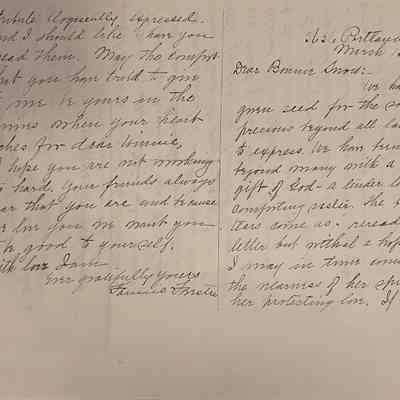 tribute eloquently expressed.
and I should like you
read them. May the comfort
that you have tried to give
me be yours in the
times when your heart
aches for dear Winnie,
I hope you are not working
too hard. Your friends always
fear that you are and because
we love you we want you
to be good to yourself.
with love I am
Ever gratefully yours
Portland
March
Dear Bonnie Snow:-
We have
given seed for the so
precious beyond all la
to express. We have
beyond many with a
gift of God - a tender lo
comforting sister. The
tears come as I reread
letter but withal a hope
I may in time
the nearness of her spi
her protecting love. If